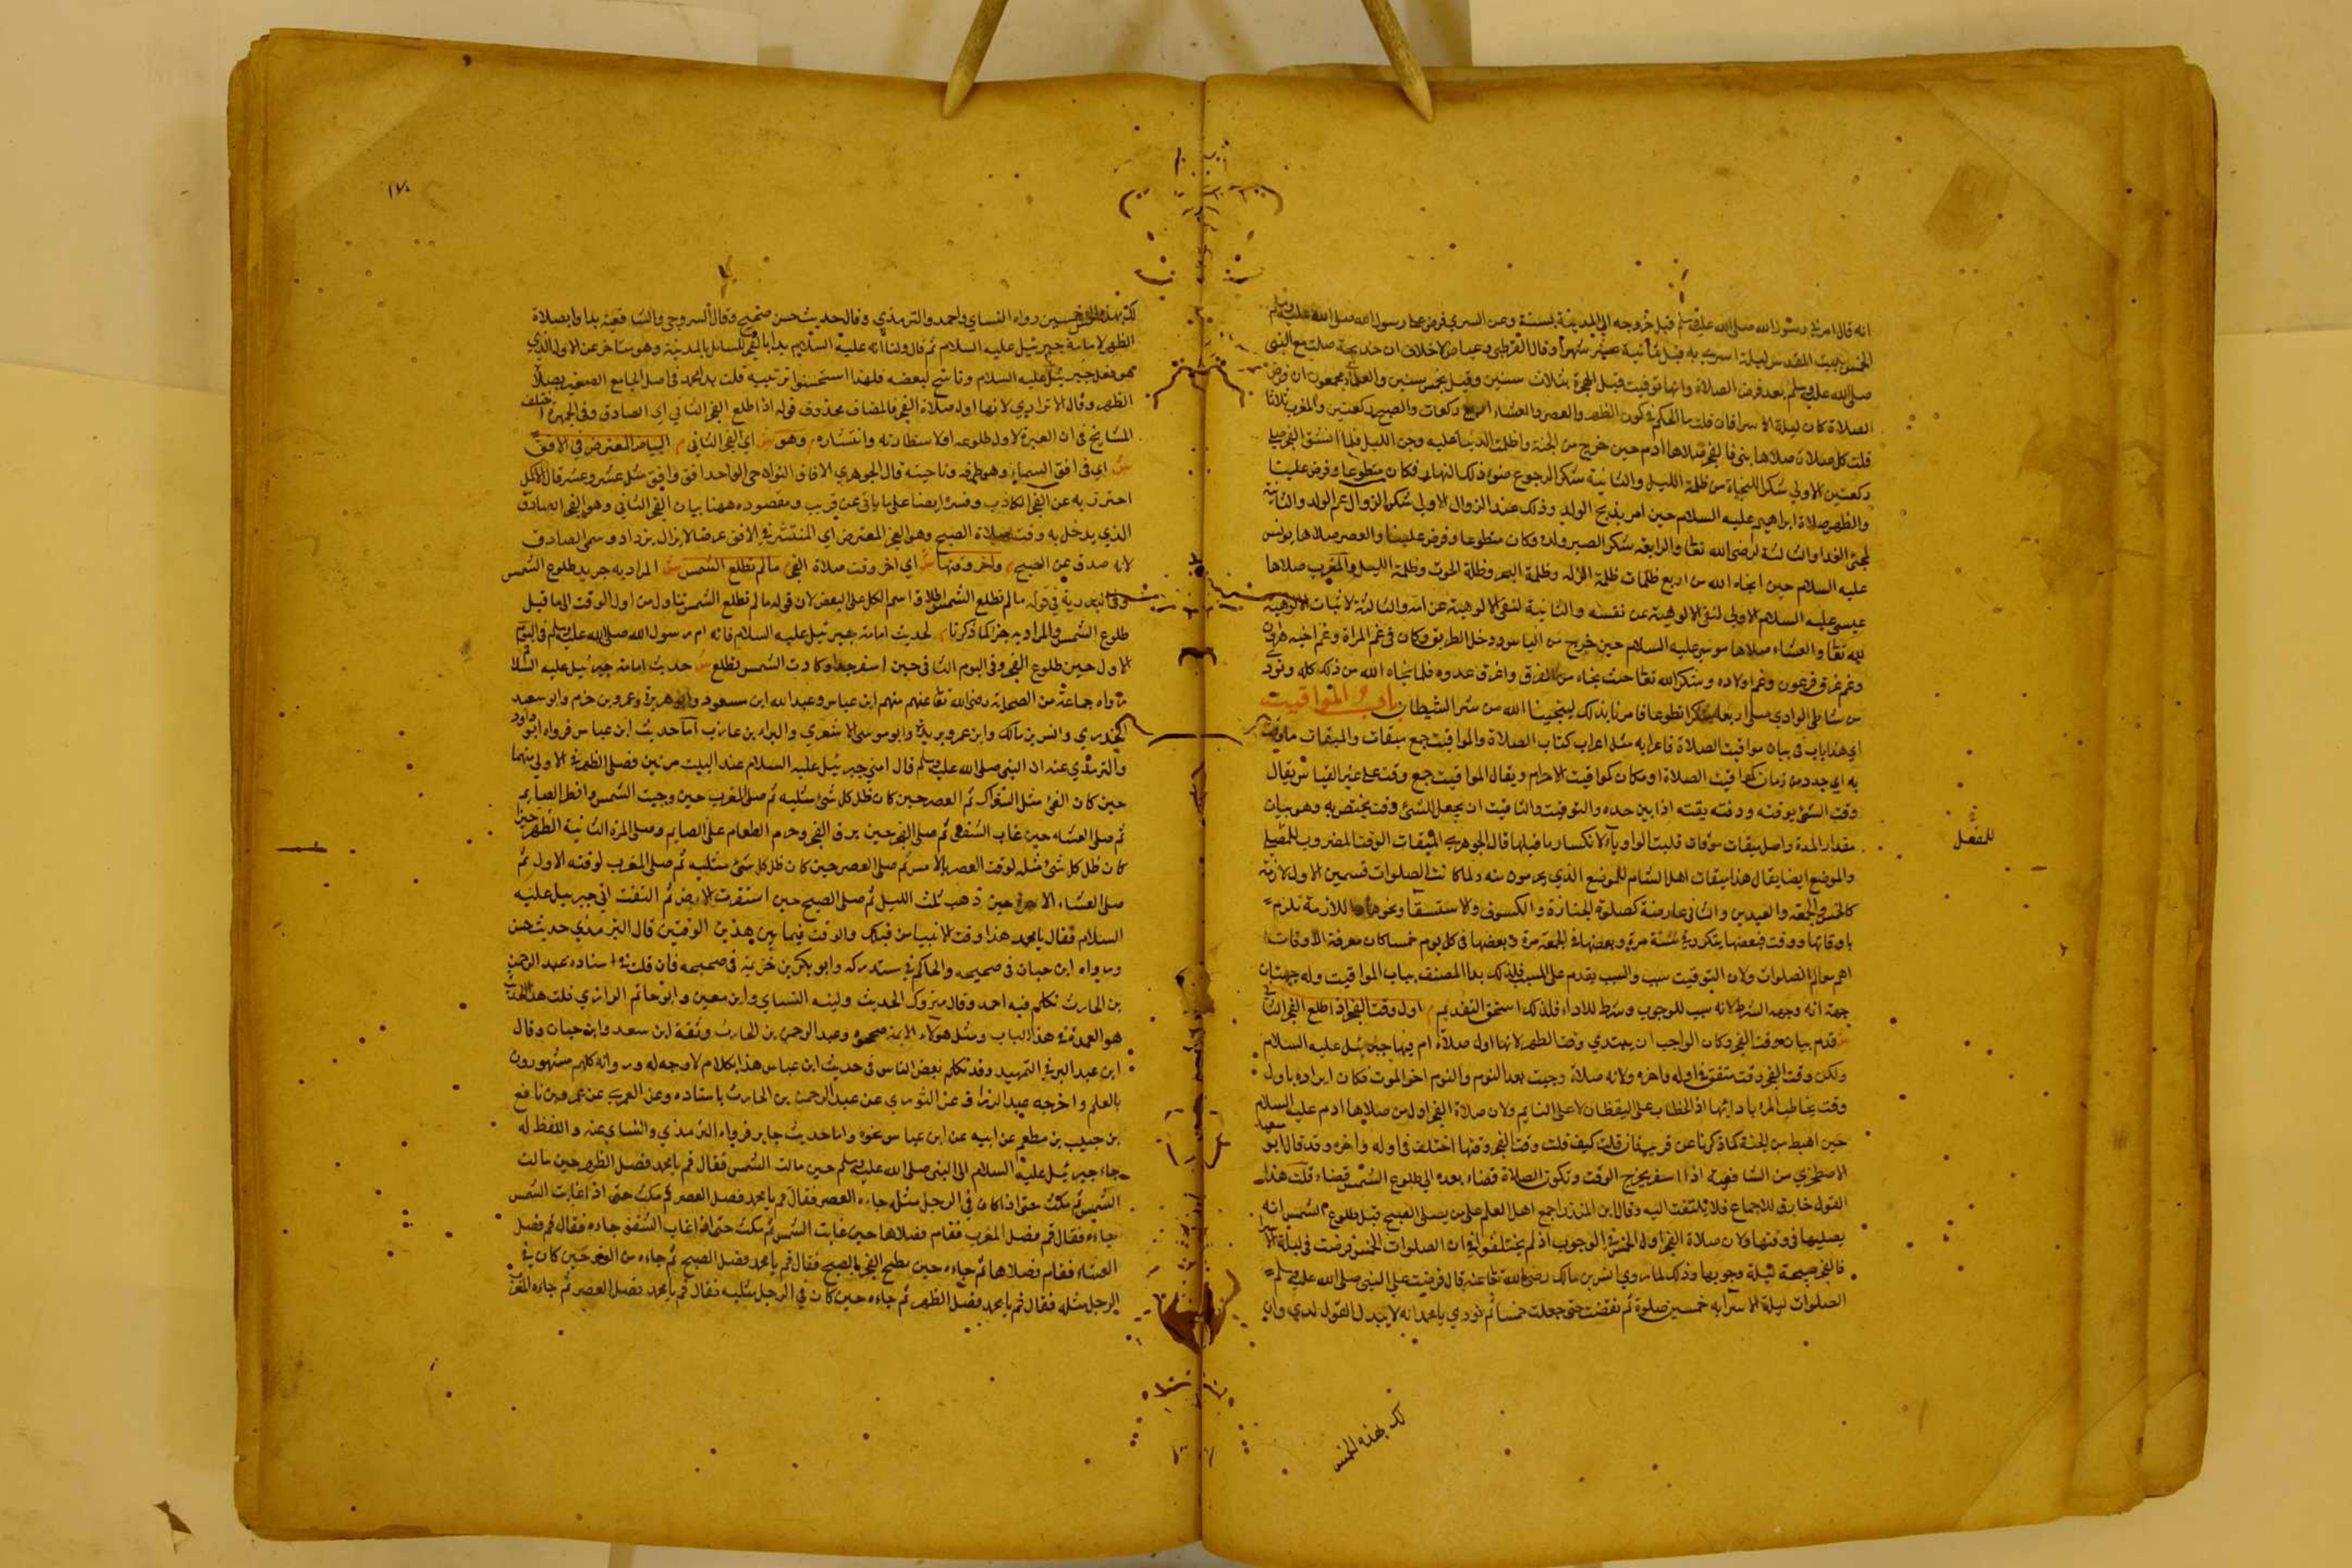 انه قال امر في رسول الله صلى الله عليه وسلم قبل خروجه الى المدينة بسنة وعن السري فرض على رسول الله صلى الله عليه وسلم
الخمس ببيت المقدس ليلة اسرى به قبل ثمانية عشر شهرا وقال القرطبي وعياض لا خلاف ان خديجة صلت مع النبي
صلى الله عليه وسلم بعد فرض الصلاة وانها توفيت قبل الهجرة بثلاث سنين وقيل بخمس سنين والعلماء مجمعون ان فرض
الصلاة كان ليلة الاسرا فان قلت ما الحكم في كون الظهر والعصر والعشاء اربع ركعات والصبح ركعتين والمغرب ثلاثا
قلت كل صلاة صلاها نبي فالفجر صلاها ادم حين خرج من الجنة واظلمت الدنيا عليه وجن الليل فلما انشق الفجر صلى
ركعتين الاولى شكرا للنجاة من ظلمة الليل والثانية شكرا لرجوع ضوء ذلك النهار فكان متطوعا وفرض علينا
والظهر صلاة ابراهيم عليه السلام حين امر بذبح الولد وذلك عند الزوال الاولى شكر الزوال غم الولد والثانية
لمجئ الفدا والثالثة لرضى الله تعا والرابعة شكر الصبر ولده وكان متطوعا وفرض علينا والعصر صلاها يونس
عليه السلام حين انجاه الله من اربع ظلمات ظلمة الزلة وظلمة البحر وظلمة الحوت وظلمة الليل والمغرب صلاها
عيسى عليه السلام الاولى لنفى الالوهية عن نفسه والثانية لنفى الالوهية عن امه والثالثة لاثبات الالوهية
لله تعا والعشاء صلاها موسى عليه السلام حين خرج من الياس ودخل الطريق وكان في غم المراة وغم اخيه هارون
وغم غرق فرعون وغم اولاده وشكر الله تعا حيث نجاه من الغرق واغرق عدوه فلما نجاه الله من ذلك كله ونودي
من شاطئ الوادي صلى اربعا شكرا تطوعا فامرنا بذلك لينجينا الله من شر الشيطان باب المواقيت
اي هذا باب في بيان مواقيت الصلاة فاعرابه مثل اعراب كتاب الصلاة والمواقيت جمع ميقات والميقات ما وقت
به اي حدد من زمان كمواقيت الصلاة او مكان كمواقيت الاحرام ويقال المواقيت جمع وقت على غير القياس يقال
وقت الشئ يوقته ووقته يقته اذا بين حده والتوقيت والتاقيت ان يجعل للشئ وقت يختص به وهو بيان
مقدار المدة واصل ميقات موقات قلبت الواو ياء لانكسار ما قبلها قال الجوهري الميقات الوقت المضروب للفعل
للفعل
والموضع ايضا يقال هذا ميقات اهل الشام للموضع الذي يحرمون منه ولما كانت الصلوات قسمين الاول لازمة
كالخمس والجمعة والعيدين والثاني عارضة كصلوة الجنازة والكسوف والاستسقا ونحوها للازمة تلزم
باوقاتها ووقت فبعضها يتكرر في سنة مرة وبعضها في الجمعة مرة وبعضها في كل يوم خمسا كان معرفة الاوقات
اهم معالم الصلوات ولان التوقيت سبب والسبب يقدم على المسبب فلذلك بدا المصنف بباب المواقيت وله جهتان
جهة انه وجهة الشرط لانه سبب للوجوب وشرط للاداء فلذلك استحق التقديم اول وقت الفجر اذا طلع الفجر الثاني
قدم بيان وقت الفجر وكان الواجب ان يبتدي وقت الظهر لانها اول صلاة ام فيها جبرئيل عليه السلام
ولكن وقت الفجر وقت متفق في اوله واخره ولانه صلاة وجبت بعد النوم والنوم اخو الموت فكان ابداه باول
وقت يخاطب المرء بادائها اذ الخطاب على اليقظان لا على النايم ولان صلاة الفجر اول من صلاها ادم عليه السلام
حين اهبط من الجنة كما ذكرنا عن قريب فان قلت كيف قلت وقت الفجر وقتها اختلف في اوله واخره وقد قال ابو سعيد
الاصطخري من الشافعية اذا اسفر يخرج الوقت وتكون الصلاة قضاء بعده الى طلوع الشمس قضاء قلت هذا
القول خارق للاجماع فلا يلتفت اليه وقال ابن المنذر اجمع اهل العلم على من يصلى الصبح قبل طلوع الشمس انه
يصليها في وقتها ولان صلاة الفجر اول الخمس في الوجوب اذ لم يختلفوا في ان الصلوات الخمس فرضت في ليلة الاسرا
فالفجر صبيحة ليلة وجوبها وذلك لما روي انس بن مالك رضى الله تعا عنه قال فرضت على النبي صلى الله عليه وسلم
الصلوات ليلة الاسرا به خمسين صلوة ثم نقصت حتى جعلت خمسا ثم نودي يا محمد انه لا يبدل القول لدي وان
لك بهذه الخمس
١٧٠
لك بهذه الخمس خمسين رواه النساي واحمد والترمذي وقال حديث حسن صحيح وقال السروجي والشافعية بداوا بصلاة
الظهر لامامة جبرئيل عليه السلام ثم قال ولنا انه عليه السلام بدا بالفجر للسائل بالمدينة وهو متاخر عن الاول الذي
هو فعل جبرئيل عليه السلام وناسخ لبعضه فلهذا استحسنوا ترتيبه قلت بدا محمد في اصل الجامع الصغير بصلاة
الظهر وقال الاترازي لانها اول صلاة الفجر فالمضاف محذوف قوله اذا طلع الفجر الثاني اي الصادق وفي الجمهرة اختلف
المشايخ في ان العبرة لاول طلوعه او لاستطارته وانتشاره وهو ش اي الفجر الثاني م البياض المعترض في الافق
ش اي في افق السماء وهو طرفه وناحيته قال الجوهري الافاق النواحي الواحد افق وافق مثل عسر وعسر قال الاكمل
احترز به عن الفجر الكاذب وفسره ايضا على ما ياتي عن قريب ومقصوده ههنا بيان الفجر الثاني وهو الفجر الصادق
الذي يدخل به وقت صلاة الصبح وهو الفجر المعترض اي المنتشر في الافق عرضا لا يزال يزداد وسمى الصادق
لانه صدق عن الصبح م واخر وقتها ش اي اخر وقت صلاة الفجر م ما لم تطلع الشمس ش المراد به جزيد طلوع الشمس
وفي قوله ما لم تطلع الشمس اطلاق اسم الكل على البعض لان قوله ما لم تطلع الشمس يتناول من اول الوقت الى ما قبل
طلوع الشمس والمراد به جزء كما ذكرنا م لحديث امامة جبرئيل عليه السلام فانه ام رسول الله صلى الله عليه وسلم في اليوم
الاول حين طلوع الفجر وفي اليوم الثاني حين اسفر جدا وكادت الشمس تطلع ش حديث امامة جبرئيل عليه السلام
رواه جماعة من الصحابة رضى الله تعا عنهم منهم ابن عباس وعبد الله ابن مسعود وابو هريرة وعمرو بن حزم وابو سعيد
الخدري وانس بن مالك وابن عمر وبريدة وابو موسى الاشعري والبراء بن عازب اما حديث ابن عباس فرواه ابو داود
والترمذي عنه ان النبي صلى الله عليه وسلم قال امني جبرئيل عليه السلام عند البيت مرتين فصلى الظهر في الاولى منهما
حين كان الفئ مثل الشراك ثم العصر حين كان ظل كل شئ مثليه ثم صلى المغرب حين وجبت الشمس وافطر الصايم
ثم صلى العشاء حين غاب الشفق ثم صلى الفجر حين برق الفجر وحرم الطعام على الصايم وصلى المرة الثانية الظهر حين
كان ظل كل شئ مثله لوقت العصر بالامس ثم صلى العصر حين كان ظل كل شئ مثليه ثم صلى المغرب لوقته الاول ثم
صلى العشاء الاخرة حين ذهب ثلث الليل ثم صلى الصبح حين اسفرت الارض ثم التفت الي جبريل عليه
السلام فقال يا محمد هذا وقت الانبياء من قبلك والوقت فيما بين هذين الوقتين قال الترمذي حديث حسن
ورواه ابن حبان في صحيحه والحاكم في مستدركه وابو بكر بن خزيمة في صحيحه فان قلت في اسناده عبد الرحمن
بن الحارث تكلم فيه احمد وقال متروك الحديث ولينه النساي وابن معين وابو حاتم الرازي قلت هذا الحديث
هو العمدة في هذا الباب ومثل هولاء الايمة صححوه وعبد الرحمن بن الحارث وثقه ابن سعد وابن حبان وقال
ابن عبد البر في التمهيد وقد تكلم بعض الناس في حديث ابن عباس هذا بكلام لا وجه له ورواته كلهم مشهورون
بالعلم واخرجه عبد الرزاق عن الثوري عن عبد الرحمن بن الحارث باسناده وعن العمري عن عمر وبن نافع
بن جبيب بن مطعم عن ابيه عن ابن عباس نحوه واما حديث جابر فرواه الترمذي والنساي عنه واللفظ له
جاء جبرئيل عليه السلام الى النبي صلى الله عليه وسلم حين مالت الشمس فقال قم يا محمد فصل الظهر حين مالت
الشمس ثم مكث حتى اذا كان في الرجل مثله جاءه العصر فقال قم يا محمد فصل العصر ثم مكث حتى اذا غابت الشمس
جاءه فقال قم فصل المغرب فقام فصلاها حين غابت الشمس ثم مكث حتى اذا غاب الشفق جاءه فقال قم فصل
العشاء فقام فصلاها ثم جاءه حين سطع الفجر بالصبح فقال قم يا محمد فصل الصبح ثم جاءه من الغد حين كان في
الرجل مثله فقال قم يا محمد فصل الظهر ثم جاءه حين كان في الرجل مثليه فقال قم يا محمد فصل العصر ثم جاءه المغرب